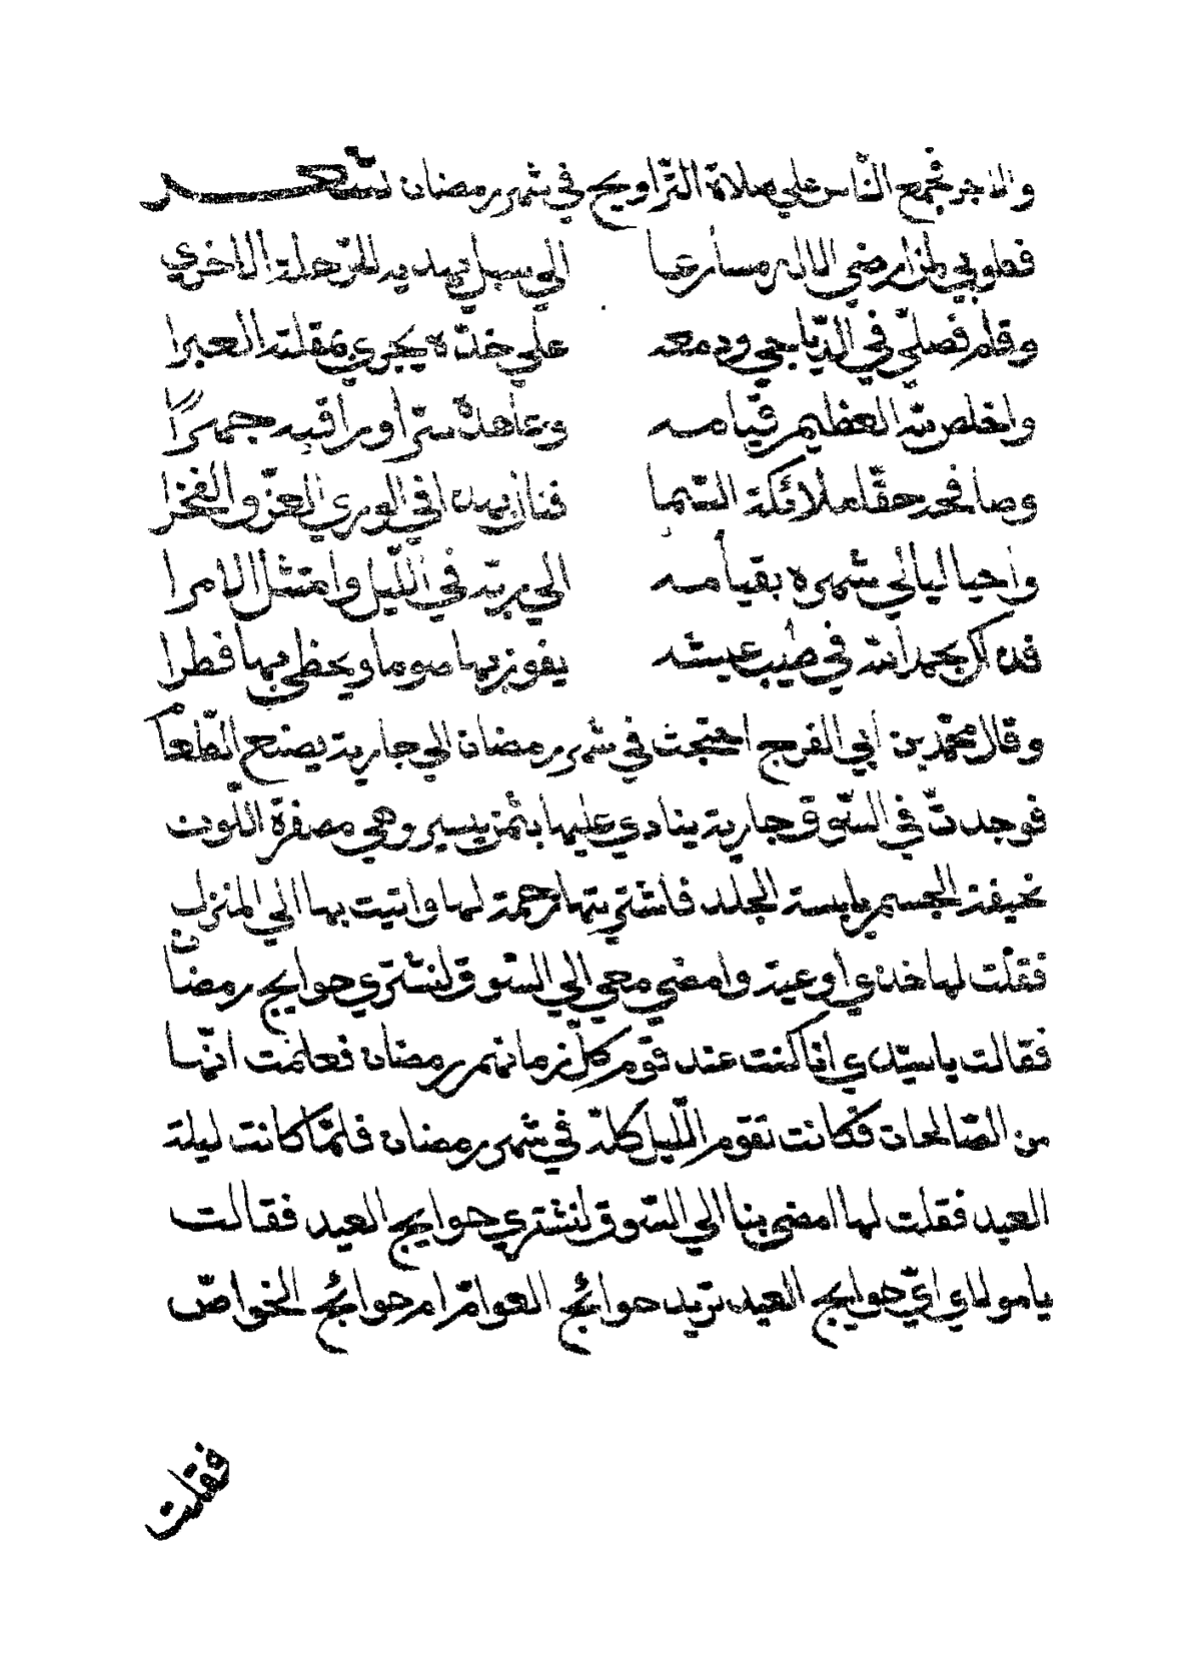 والاجر فجمع النّاس علي صلاة التّراويح في شهر رمضان شعر
فطوبي لمن ارضي الاله مسارعا الي سبل تهديه للرّحلة الاخري
وقام فصلّي في الدّياجي ودمعه علي خدّه يجري بمقلته العبرا
واخلص لله العظيم قيامه وعاهده سرّا وراقبه جهرًا
وصافحه حقّا ملائكة السّما فنال بهذا في الوري العزّ والفخرا
واحيا ليالي شهره بقيامه الي ربّه في اللّيل وامتثل الامرا
فذاكر بحمد الله في طيب عيشه يفوز بها صوما ويحظي بها فطرا
وقال محمّد بن ابي الفرج احتجت في شهر رمضان الي جارية يصنع الطّعام
فوجدتّ في السّوق جارية ينادي عليها بثمن يسير وهي مصفرّة اللّون
نحيفة الجسم يابسة الجلد فاشتريتها رحمة لها واتيت بها الي المنزل
فقلت لها خذي اوعية وامضي معي الي السّوق لنشتري حوايج رمضان
فقالت يا سيّدي انا كنت عند قوم كلّ زمانهم رمضان فعلمت انّها
من الصّالحات فكانت تقوم اللّيل كلّه في شهر رمضان فلمّا كانت ليلة
العيد فقلت لها امضي بنا الي السّوق لنشتري حوايج العيد فقالت
يا مولاي ايّ حوايج العيد تريد حوائج العوامّ ام حوائج الخواصّ
فقلت